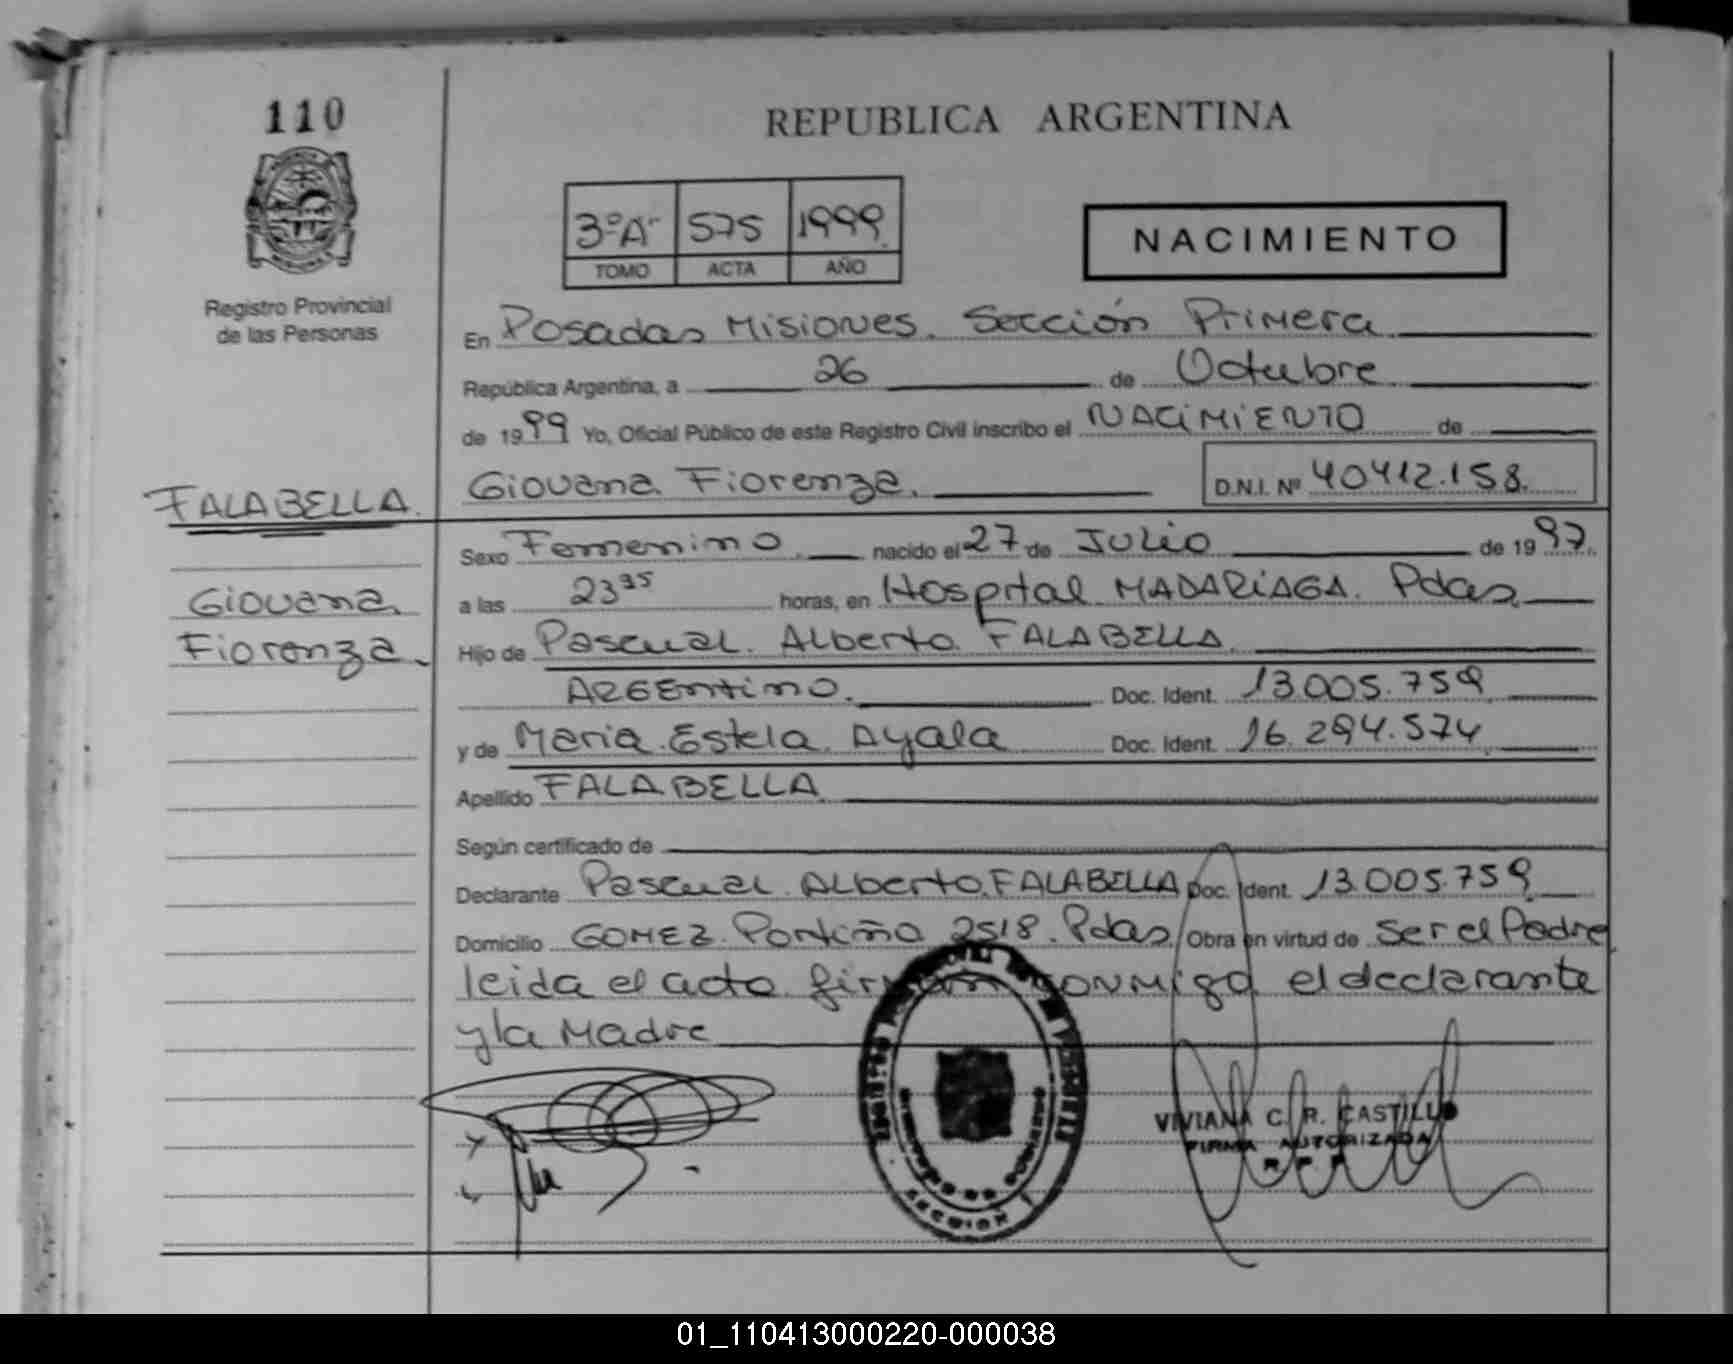 110
REPUBLICA ARGENTINA
3ºA 575 1999
TOMO ACTA AÑO
NACIMIENTO
Registro Provincial
de las Personas
En Posadas Misiones. Sección Primera
República Argentina, a 26 de Octubre
de 1999 Yo, Oficial Público de este Registro Civil inscribo el NACIMIENTO de
Giovana Fiorenza. D.N.I. Nº 40412.158.
FALABELLA.
Giovana
Fiorenza
Sexo Femenino nacido el 27 de Julio de 1997.
a las horas, en Hospital MADARIAGA. Pdas
Hijo de Pascual Alberto FALABELLA
ARGEntino. Doc. Ident. 13.005.759
y de Maria Estela Ayala Doc. Ident. 16.294.574
Apellido FALABELLA
Según certificado de
Declarante Pascual Alberto FALABELLA Doc. Ident. 13.005.759
Domicilio GOMEZ Portiño 2518. Pdas Obra en virtud de ser el Padre
leida el acta firman conmigo el declarante
y la Madre
VIVIANA C. R. CASTILLO
FIRMA AUTORIZADA
R. P. P.
SECCION 1
01_110413000220-000038